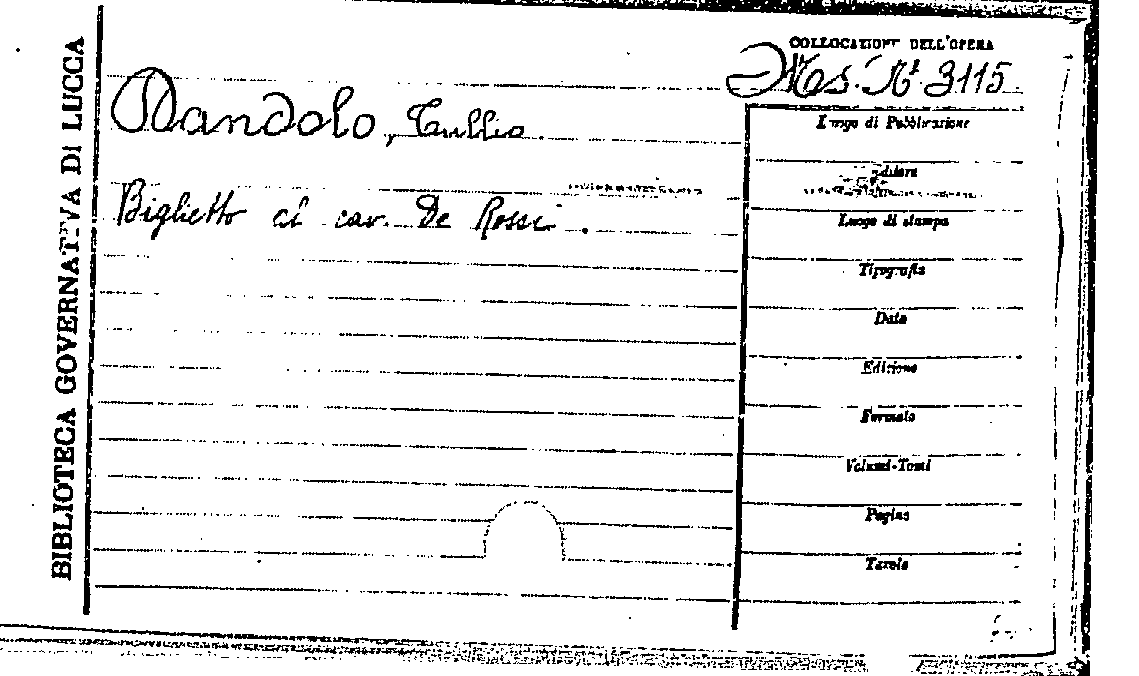 BIBLIOTECA GOVERNATIVA DI LUCCA
COLLOCAZIONE DELL'OPERA
Ms. N° 3115
Dandolo, Tullio.
Biglietto al cav. De Rossi.
Luogo di Pubblicazione
Editore
Luogo di stampa
Tipografia
Data
Edizione
Formato
Volumi-Tomi
Pagine
Tavole